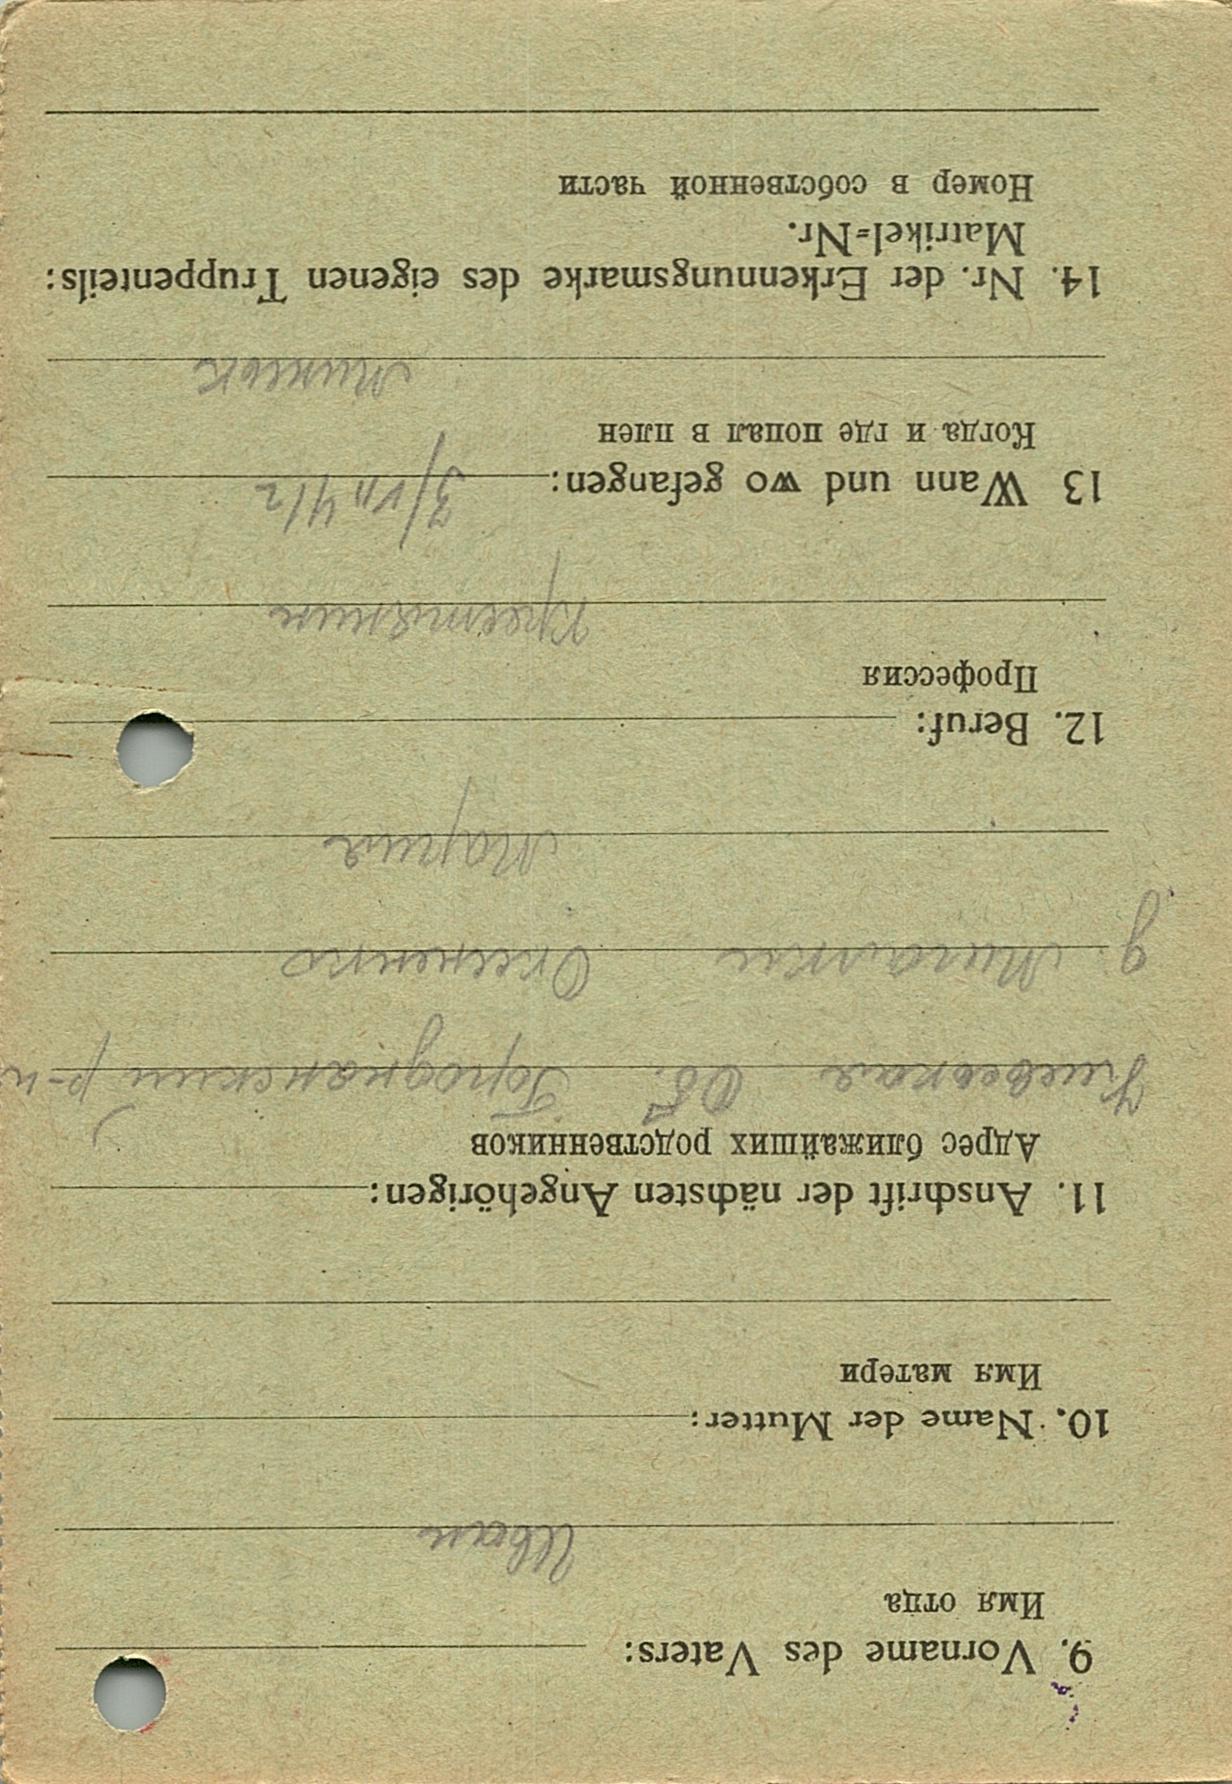 9. Vorname des Vaters:
Имя отца
Иван
10. Name der Mutter:
Имя матери
11. Anschrift der nächsten Angehörigen:
Адрес ближайших родственников
Киевская Об. Бороднанский р-н
д. Мигалки
Мария
12. Beruf:
Профессия
Крестянин
13 Wann und wo gefangen:
3/VII 41 г
Когда и где попал в плен
Минск
14. Nr. der Erkennungsmarke des eigenen Truppenteils:
Matrikel=Nr.
Номер в собственной части